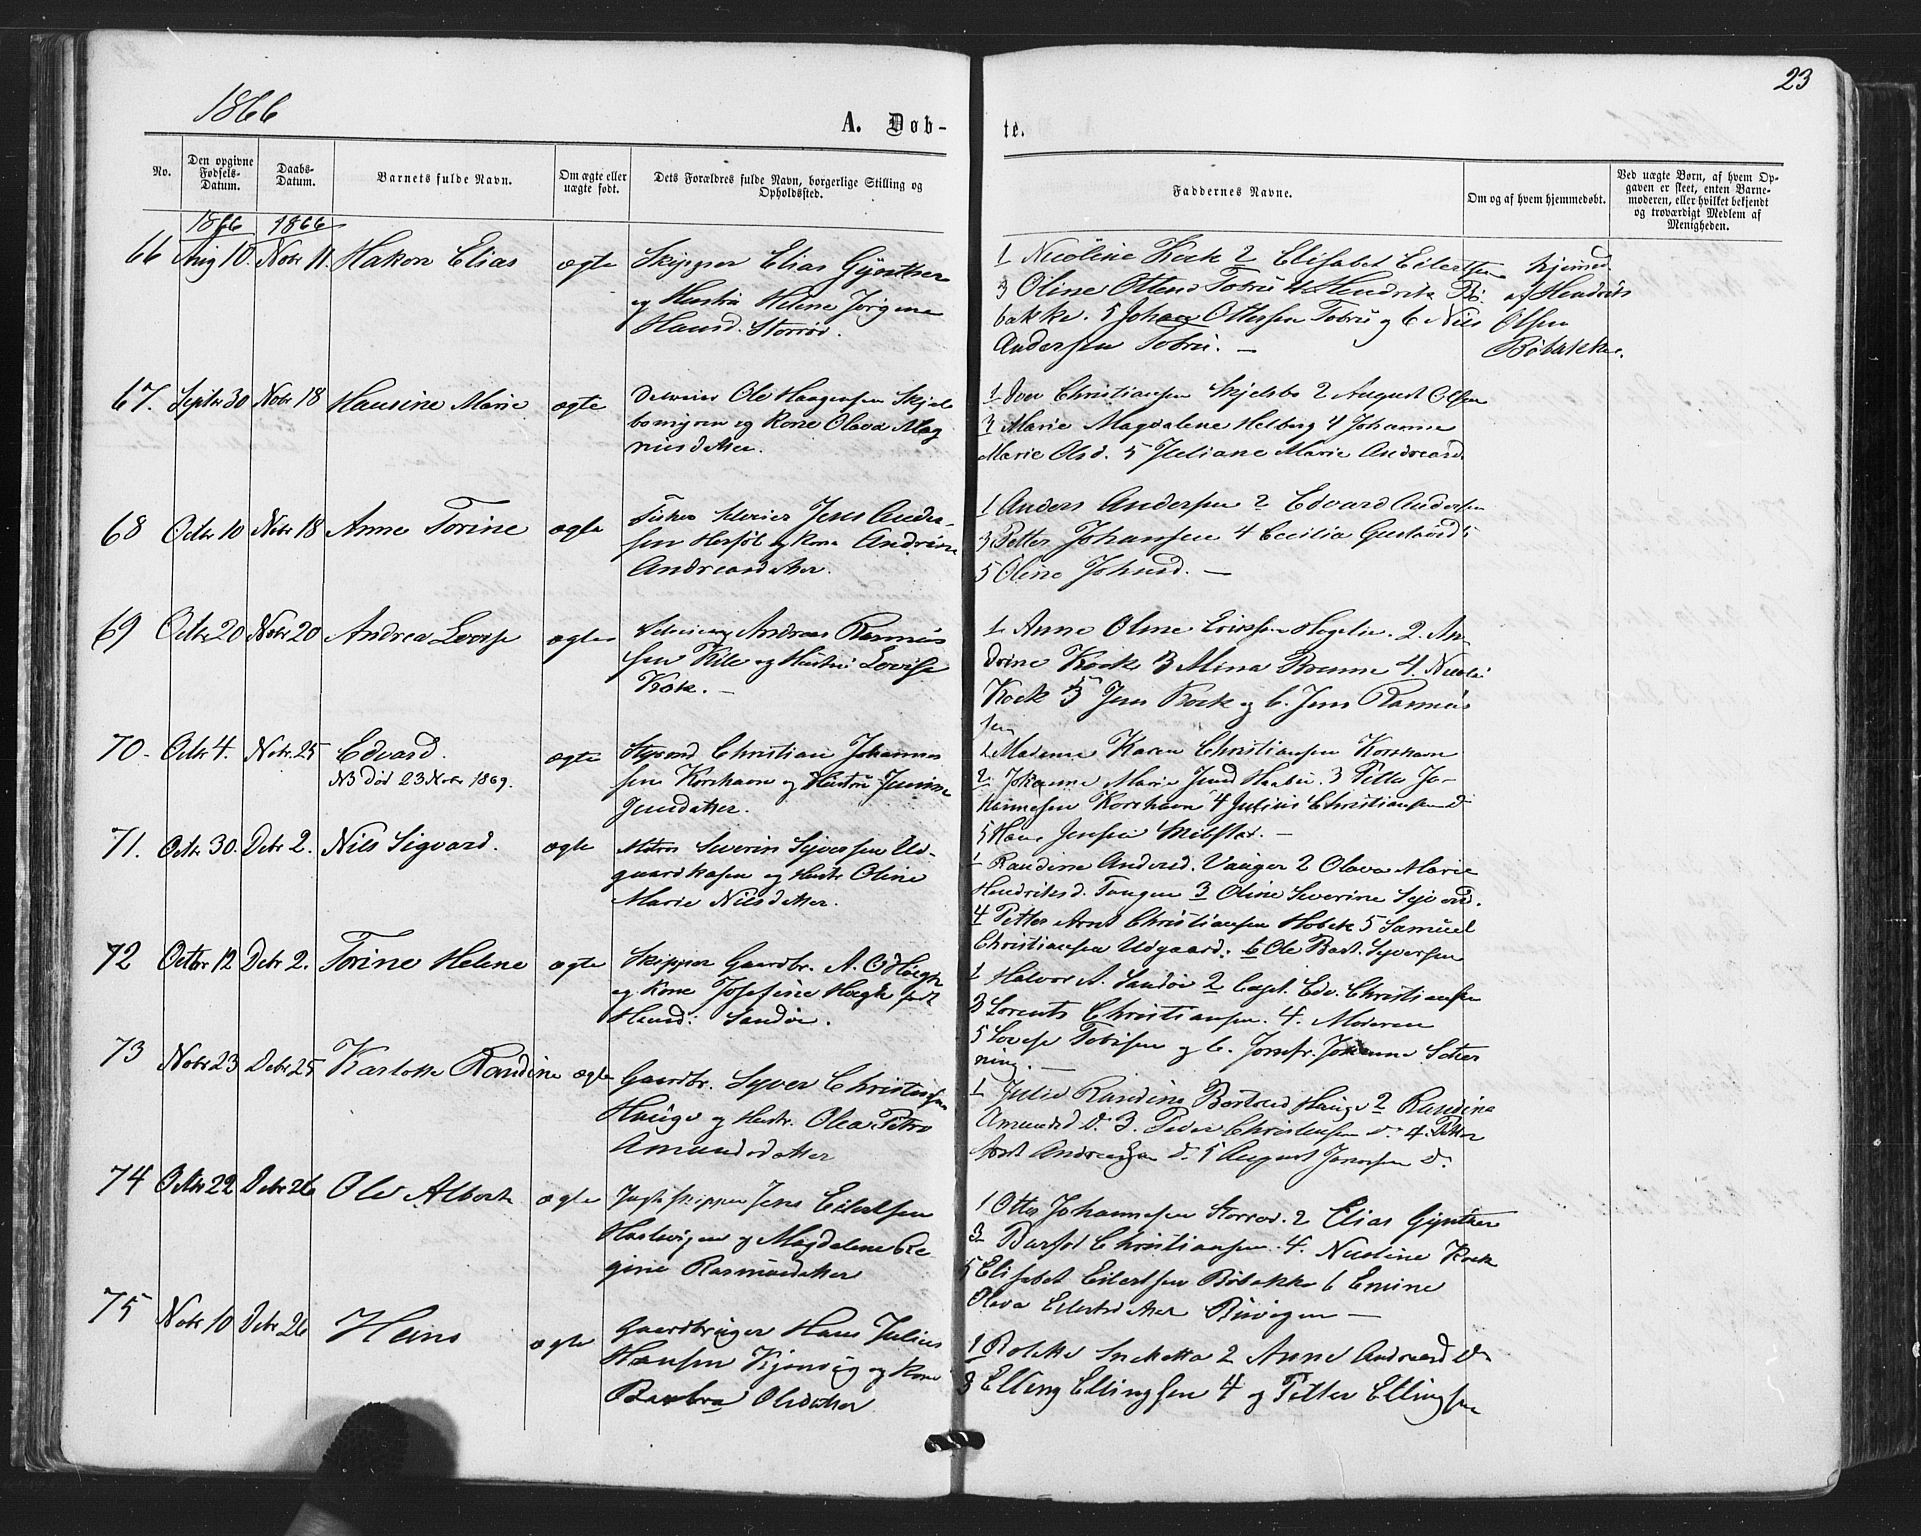 1866
A. Døb-
te.
23
No.
Den opgivne Fødsels-Datum.
Daabs-Datum.
Barnets fulde Navn.
Om ægte eller uægte født.
Dets Forældres fulde Navn, borgerlige Stilling og Opholdssted.
Faddernes Navne.
Om og af hvem hjemmedøbt.
Ved uægte Børn, af hvem Opgaven er skeet, enten Barnemoderen, eller hvilket bekjendt og troværdigt Medlem af Menigheden.
1866 1866
66 Aug 10. Nobr 11. Hakon Elias ægte
Skipper Elias Gÿnther
og Hustru Helene Jørgine
Hansd. Storrød.
1 Nicoline Kock 2 Elisabet Eilertsen
3 Oline Ottersd Tobrü 4 Hendrik Bö-
bakke. 5 Johan Ottersen Tobrü og 6 Nils
Andersen Tobrü. —
hjemed
af Hendrik
Olsen
Böbakke.
67. Septbr 30 Nobr 18 Hansine Marie ægte
Ole Haagensen Skjel-
bomyren og Kone Olava Mag
nusdatter.
1 Iver Christiansen Skjelsbo 2 August Olsen
3 Marie Magdalene Helberg 4 Johanne
Marie Olsd. 5 Juliane Marie Andreasd.
68 Octbr 10 Nobr 18 Anne Torine ægte
Fisker Jens Ander-
sen Herföl og Kone Andrine
Andreasdatter.
1 Anders Andersen 2 Edvard Andersen
3 Petter Johansen 4 Cecilia Gustavsd
5 Oline Johnsd. —
69 Octbr 20 Nobr 20 Andrea Lovise ægte
Andreas Rasmüs
sen Kile og Hustru Lovise
Kok. —
1 Anne Oline Eriksen 2. An-
drine Kock 3 Mina Brunne 4. Nicolai
Kock 5 Jens Kock og 6. Jens Rasmüs
sen
70. Octbr 4. Nobr. 25 Edvard. ægte
NB död 23 Nobr 1869.
Styrmd Christian Johannes
sen Korshavn og Hustru Junine
Jensdatter.
1 Madame Karen Christiansen Korshavn
2. Johanne Marie 3 Petter Jo-
hannesen Korshavn 4 Julius Christiansen d
5 Hans Jensen —
71. Octbr 30. Debr 2. Nils Sigvard. ægte
Matros Severin Syversen Ud-
gaardkasen og Hustr Oline
Marie Nilsdatter.
1 Randine Andersd. Vauger 2 Olava Marie
Hendriksd. Tangen 3 Oline Severine Syversd.
4 Petter Arnt Christiansen Hobek 5 Samüel
Christiansen Udgaard. 6 Ole Bast. Syversen
72 Octbr 12 Debr 2. Torine Helene ægte
Skipper Gaardbr. A. O Høegh
og Kone Josefine Høegh født
Hansd: Sandöe.
1 Halvor A. Sandöe 2 Capt. Edv. Christiansen
3 Lorents Christiansen. 4. Moderen
5 Lovise Tobisen og 6. Jomfr. Johanne Scher
ning. —
73 Nobr 23 Debr 25 Karlotte Randine ægte
Gaardbr. Syver Christensen
Hauge og Hustr. Olea Petro
Amundsdatter
1 Julie Randine Bertsud Hauge 2 Randine
Amundsd d. 3. Peder Christensen d. 4. Petter
Arnt Andreassen d. 5 August Jensen d.
74 Octbr 22 Debr 26 Ole Albert ægte
Jagtskipper Jens Eilertsen
og Magdalene Re
gine Rasmusdatter
1 Otter Johannesen Storröd. 2 Elias Gÿnther
3 Christiansen. 4. Nicoline Kock
5 Elisabet Eilertsen Böbakke 6 Emine
Olava Eilertsdatter —
75 Nobr 10 Debr 26 Hans ægte
Gaardbruger Hans Julius
Hansen Kjönvig og Kone
Barbra Olsdatter
1 2 Anne Andreasd d.
3 Elling Ellingsen 4 og Petter Ellingsen